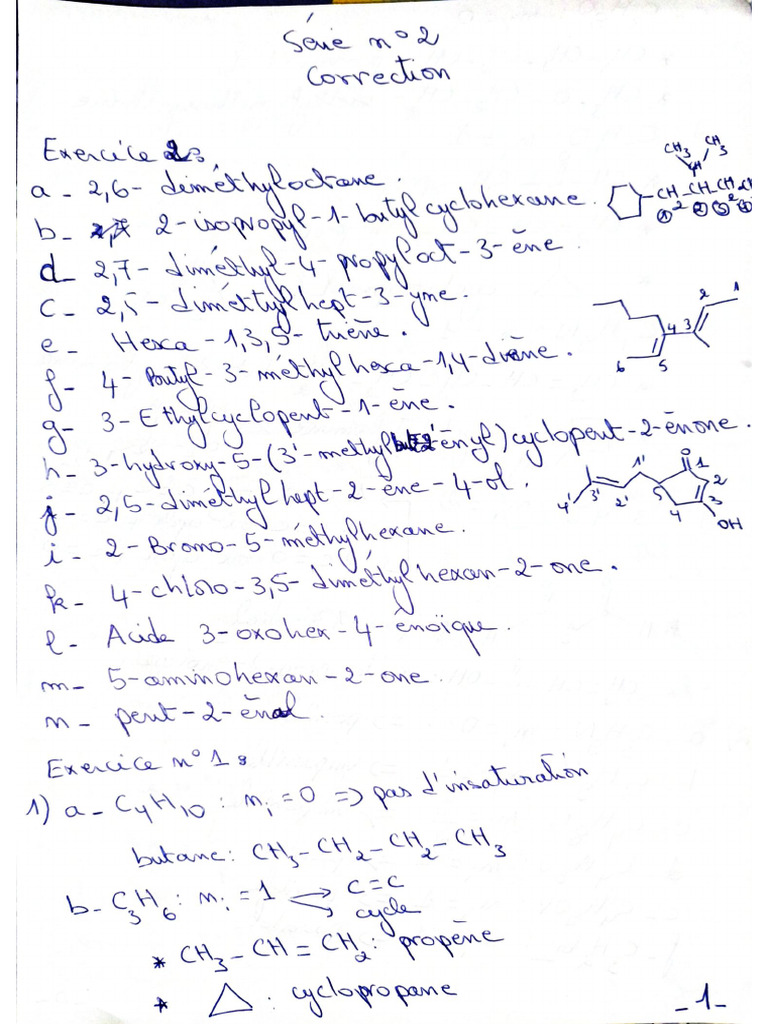 Série n° 2
Correction
Exercice 2:
a - 2,6- diméthyloctane.
b - 2-isopropyl-1-butylcyclohexane.
CH3 CH3
CH
-CH-CH-CH2
1 2 3
d - 2,7-diméthyl-4-propyloct-3-ène.
c - 2,5-diméthylhept-3-yne.
e - Hexa-1,3,5-triène.
1 2 3 4 5 6
f - 4-Butyl-3-méthylhexa-1,4-diène.
g - 3-Ethylcyclopent-1-ène.
h - 3-hydroxy-5-(3'-methyl 2'ènyl)cyclopent-2-ènone.
j - 2,5-diméthylhept-2-ène-4-ol.
4' 3' 2' 1' 5 4 3 2 1 O OH
i - 2-Bromo-5-méthylhexane.
k - 4-chloro-3,5-diméthylhexan-2-one.
l - Acide 3-oxohex-4-ènoïque.
m - 5-aminohexan-2-one.
n - pent-2-ènal.
Exercice n° 1:
1) a - C4H10 : ni = 0 => pas d'insaturation
butane: CH3-CH2-CH2-CH3
b - C3H6 : ni = 1 → C=C
→ cycle
* CH3-CH=CH2: propène
* △ : cyclopropane
-1-